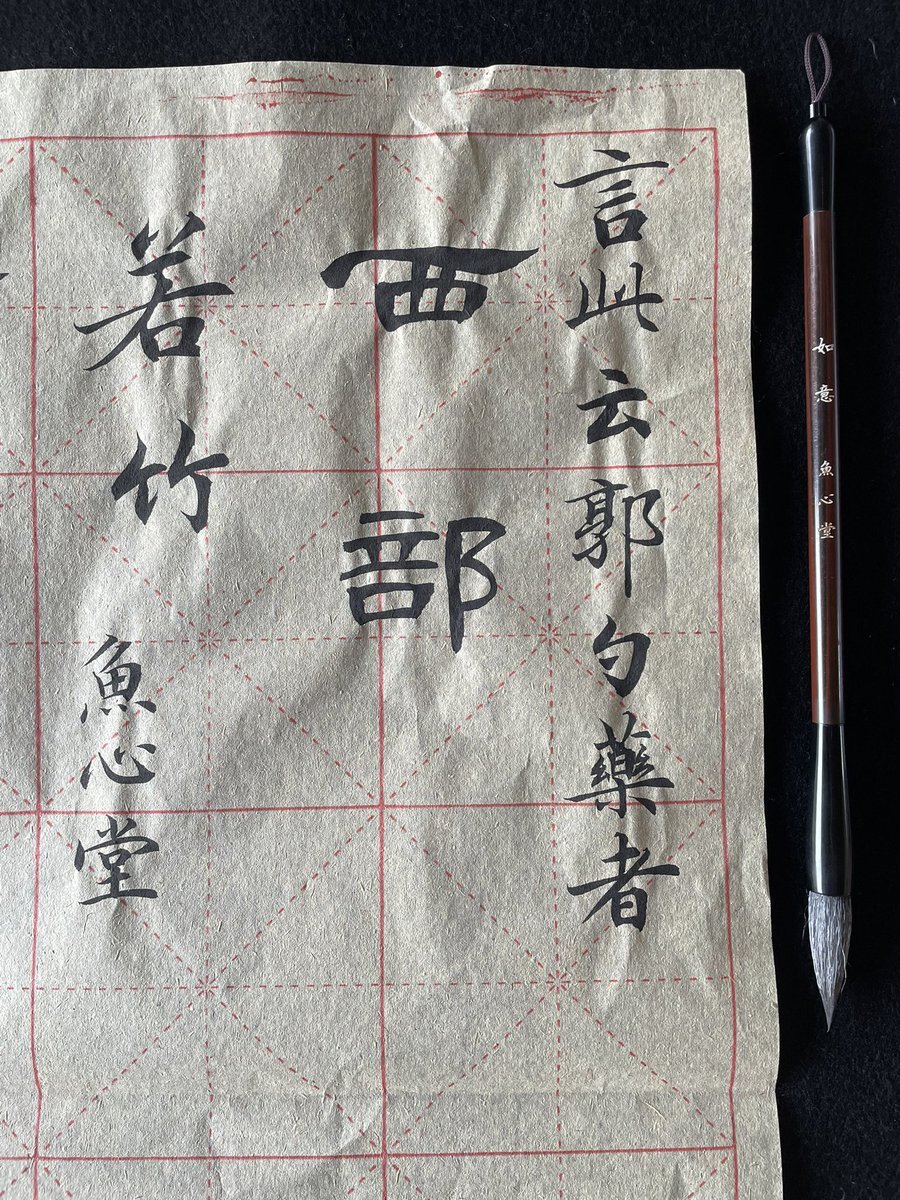 言此云郭勺藥者
西部
若竹
魚心堂
如意 魚心堂